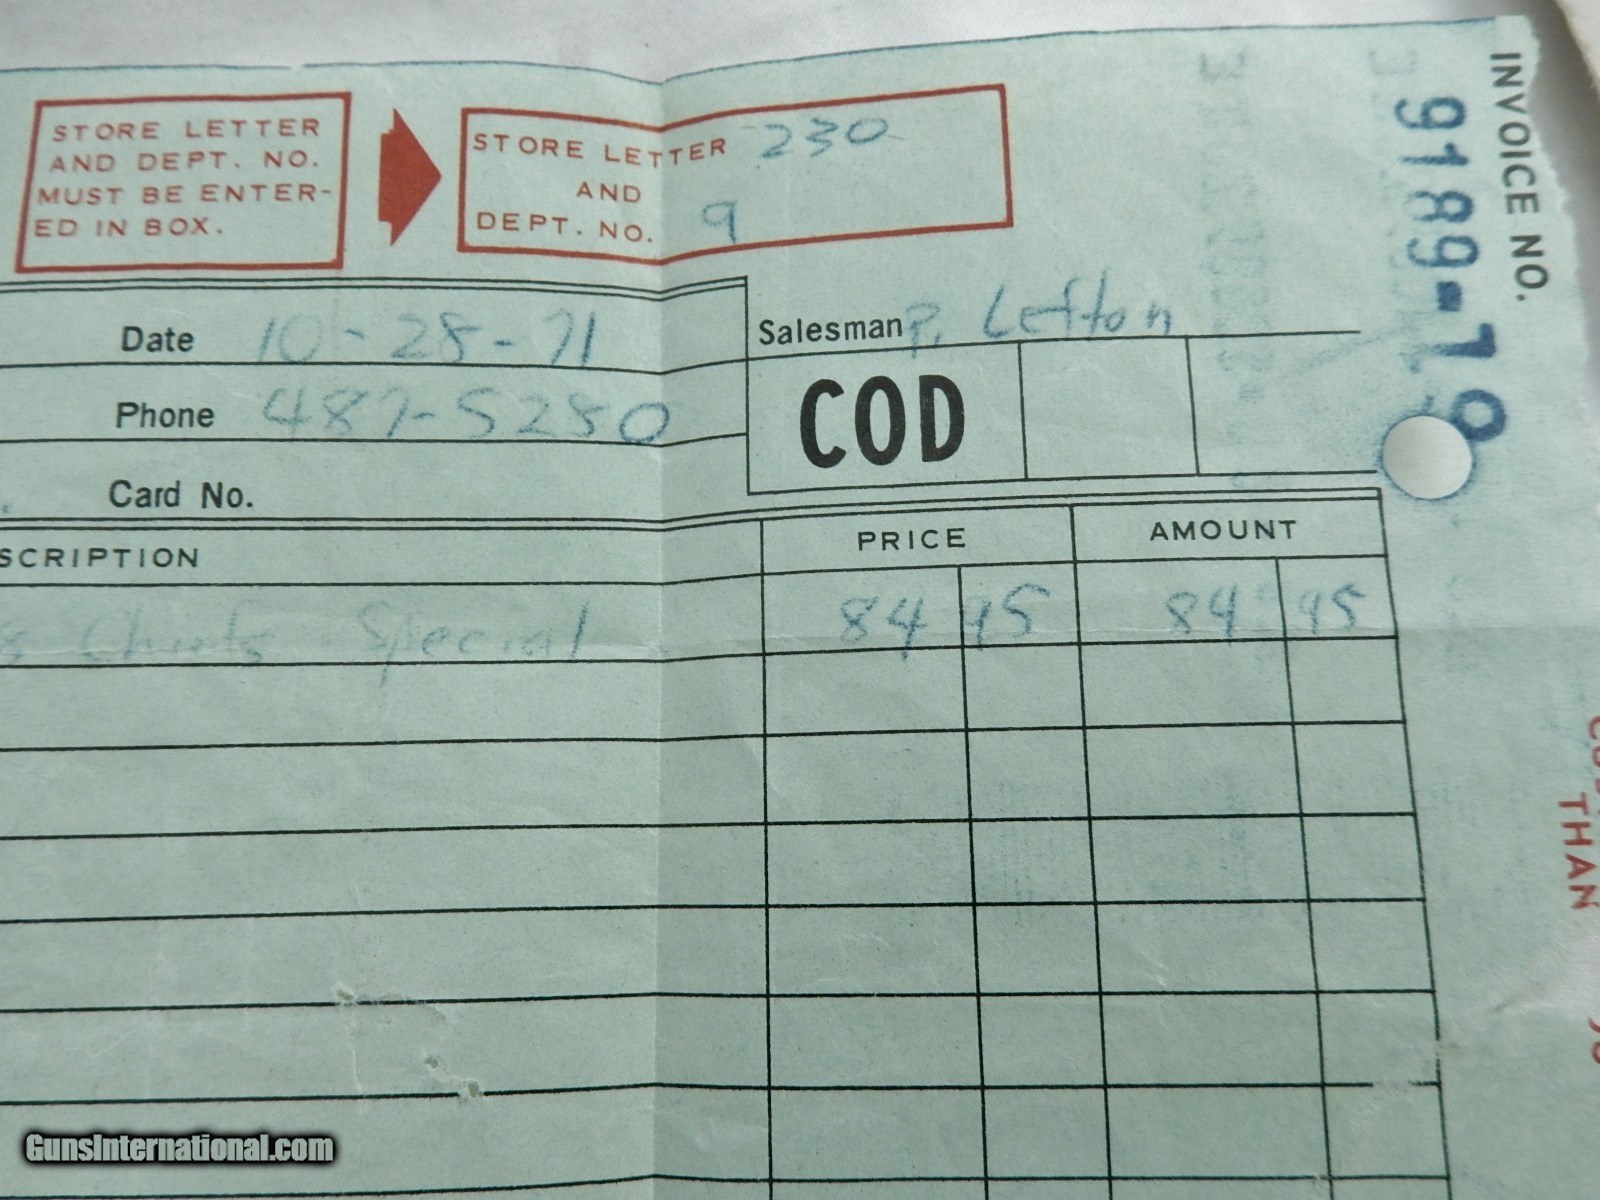 STORE LETTER
AND DEPT. NO.
MUST BE ENTER-
ED IN BOX.
STORE LETTER 230
AND
DEPT. NO. 9
INVOICE NO.
9189-19
Date 10-28-71
Salesman P. Lefton
Phone 487-5280
COD
Card No.
SCRIPTION
PRICE
AMOUNT
Chiefs Special 84 95 84 95
THAN
GunsInternational.com